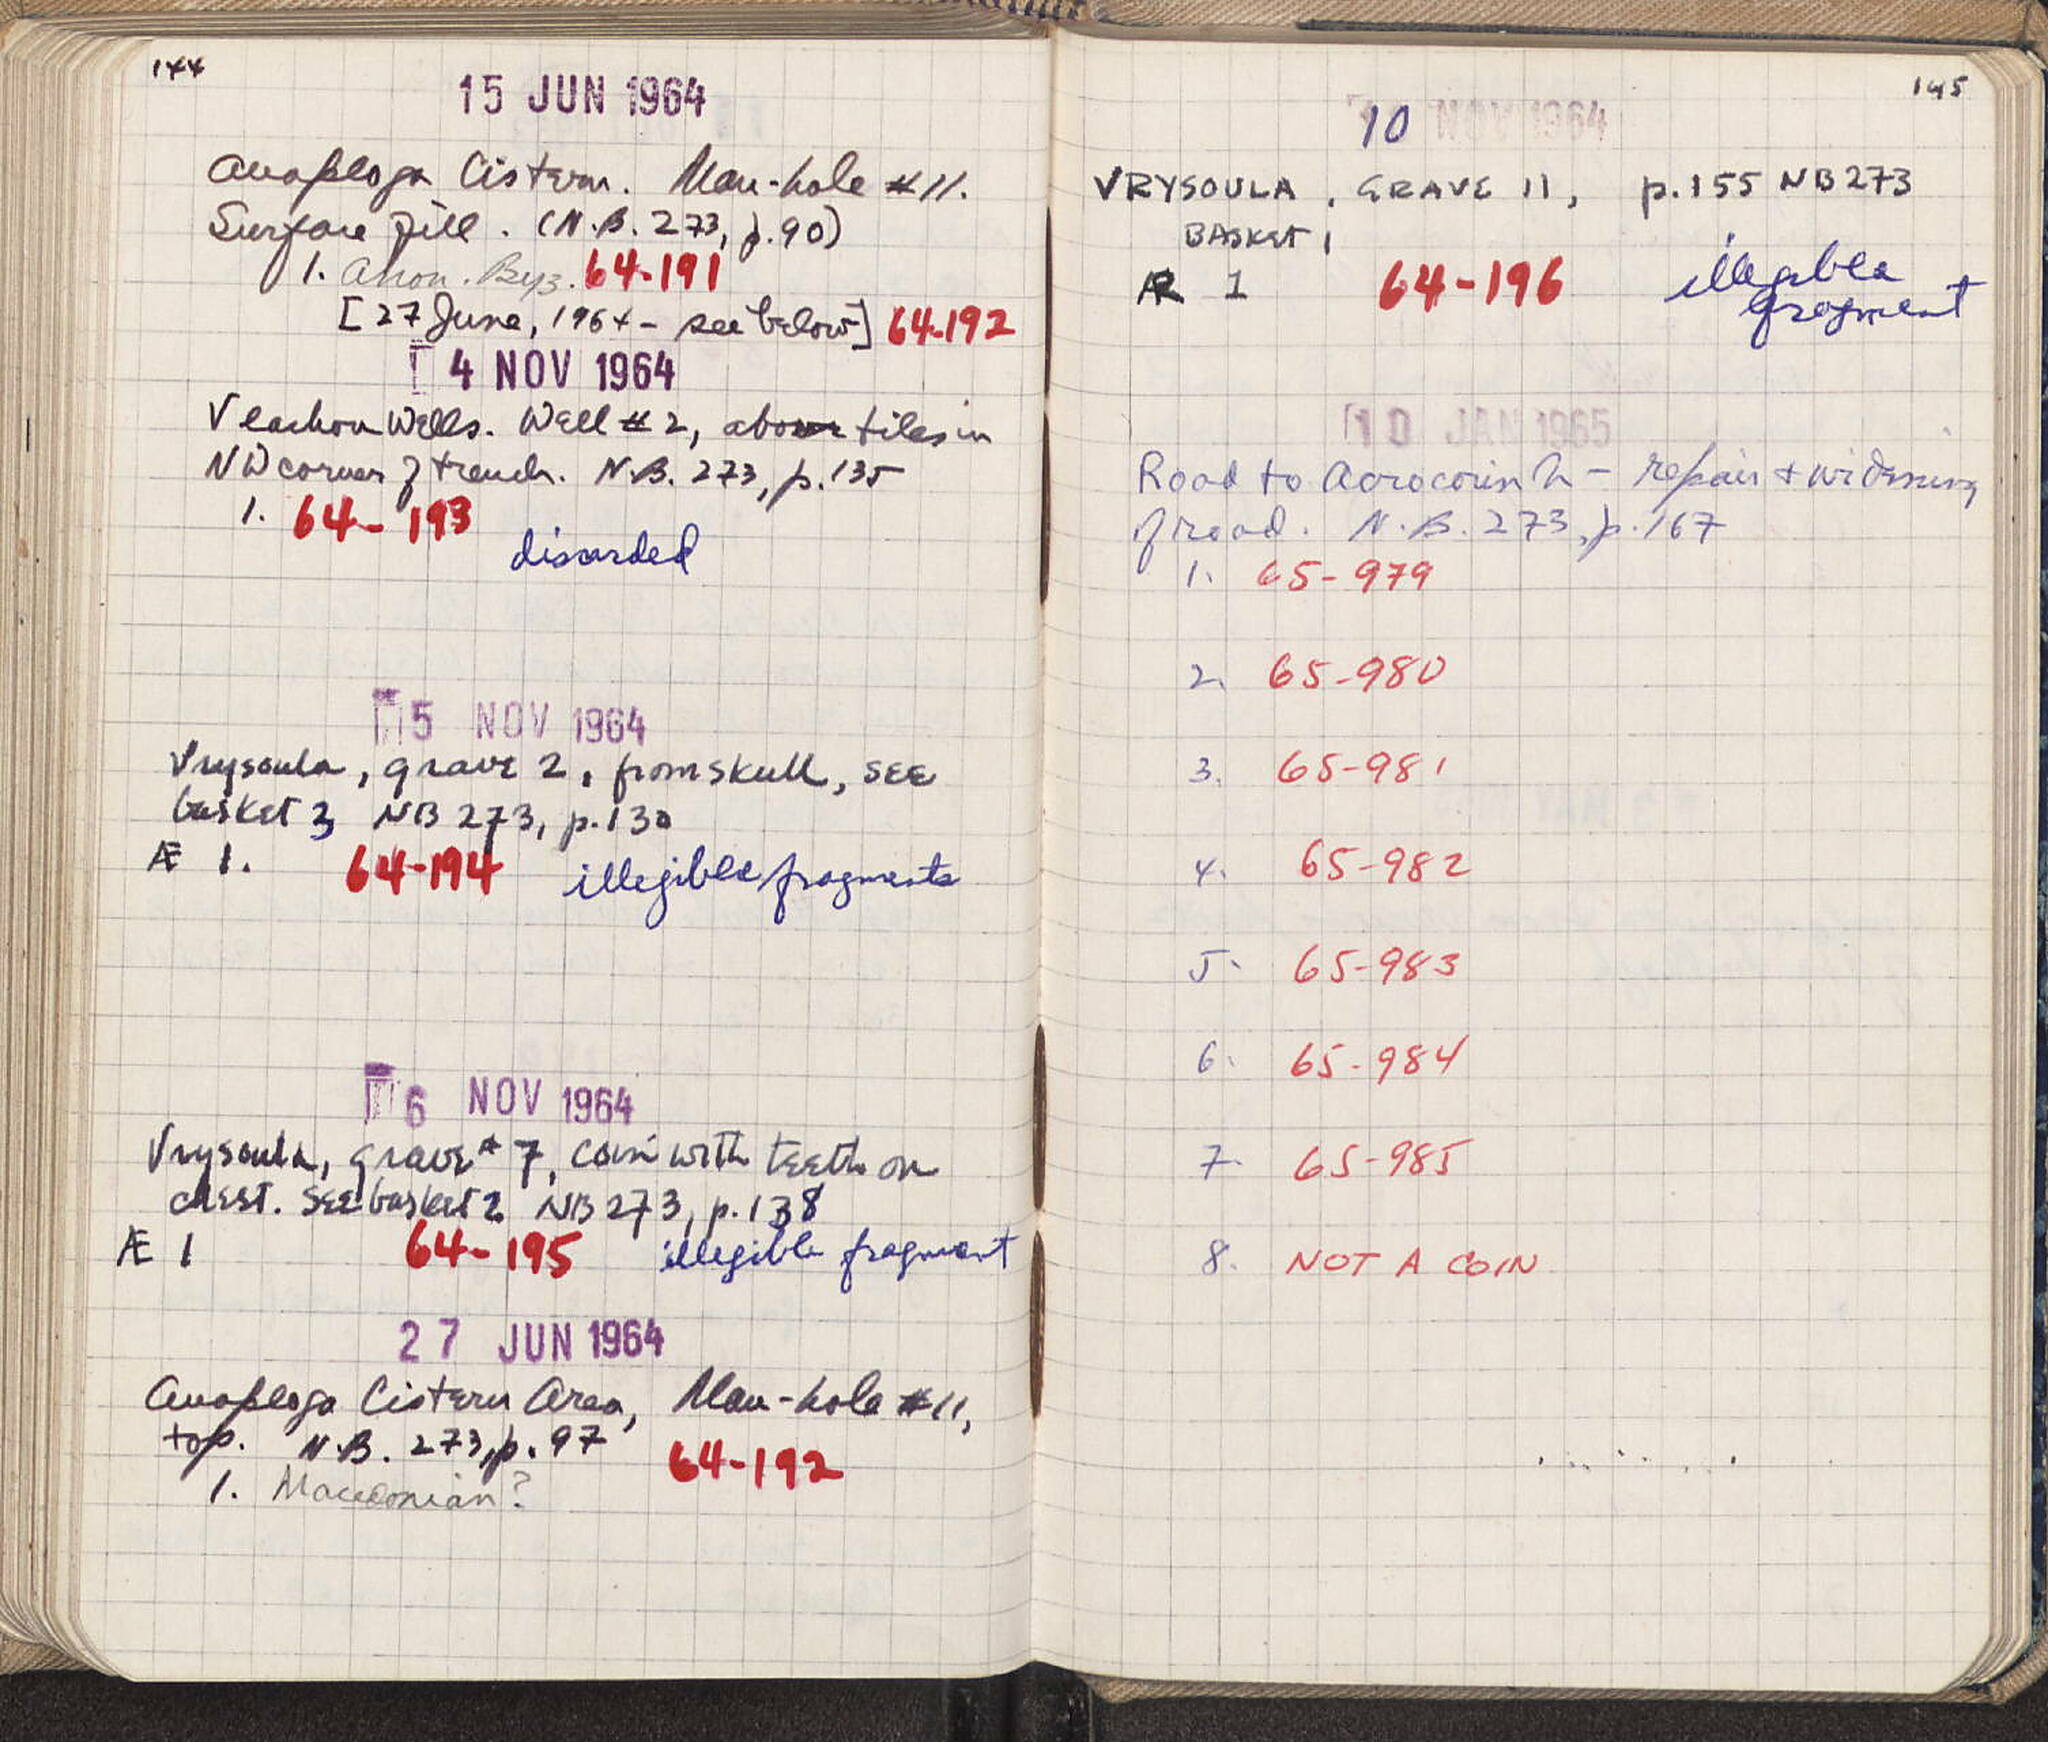 144
15 JUN 1964
Anaploga Cistern. Man-hole #11.
Surface fill. (N.B. 273, p.90)
1. Anon. Byz. 64-191
[27 June, 1964 - see below] 64-192
4 NOV 1964
Vlachou Wells. Well #2, above tiles in
NW corner of trench. N.B. 273, p.135
1. 64-193
discarded
5 NOV 1964
Vrysoula, grave 2, from skull, see
basket 3 NB 273, p.130
Æ 1. 64-194 illegible fragments
6 NOV 1964
Vrysoula, grave # 7, coin with teeth on
chest. See basket 2 NB 273, p.138
Æ 1 64-195 illegible fragment
27 JUN 1964
Anaploga Cistern Area, Man-hole #11,
top. N.B. 273, p.97
64-192
1. Macedonian?
145
10 NOV 1964
VRYSOULA, GRAVE 11, p.155 NB 273
BASKET 1
Æ 1 64-196 illegible
fragment
10 JAN 1965
Road to Acrocorinth - repair + widening
of road. N.B. 273, p.167
1. 65-979
2. 65-980
3. 65-981
4. 65-982
5. 65-983
6. 65-984
7. 65-985
8. NOT A COIN